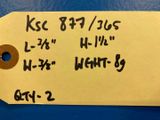 KSC 877/365
L-3/8" H-1½"
W-7/8" WGHT-8g
QTY-2